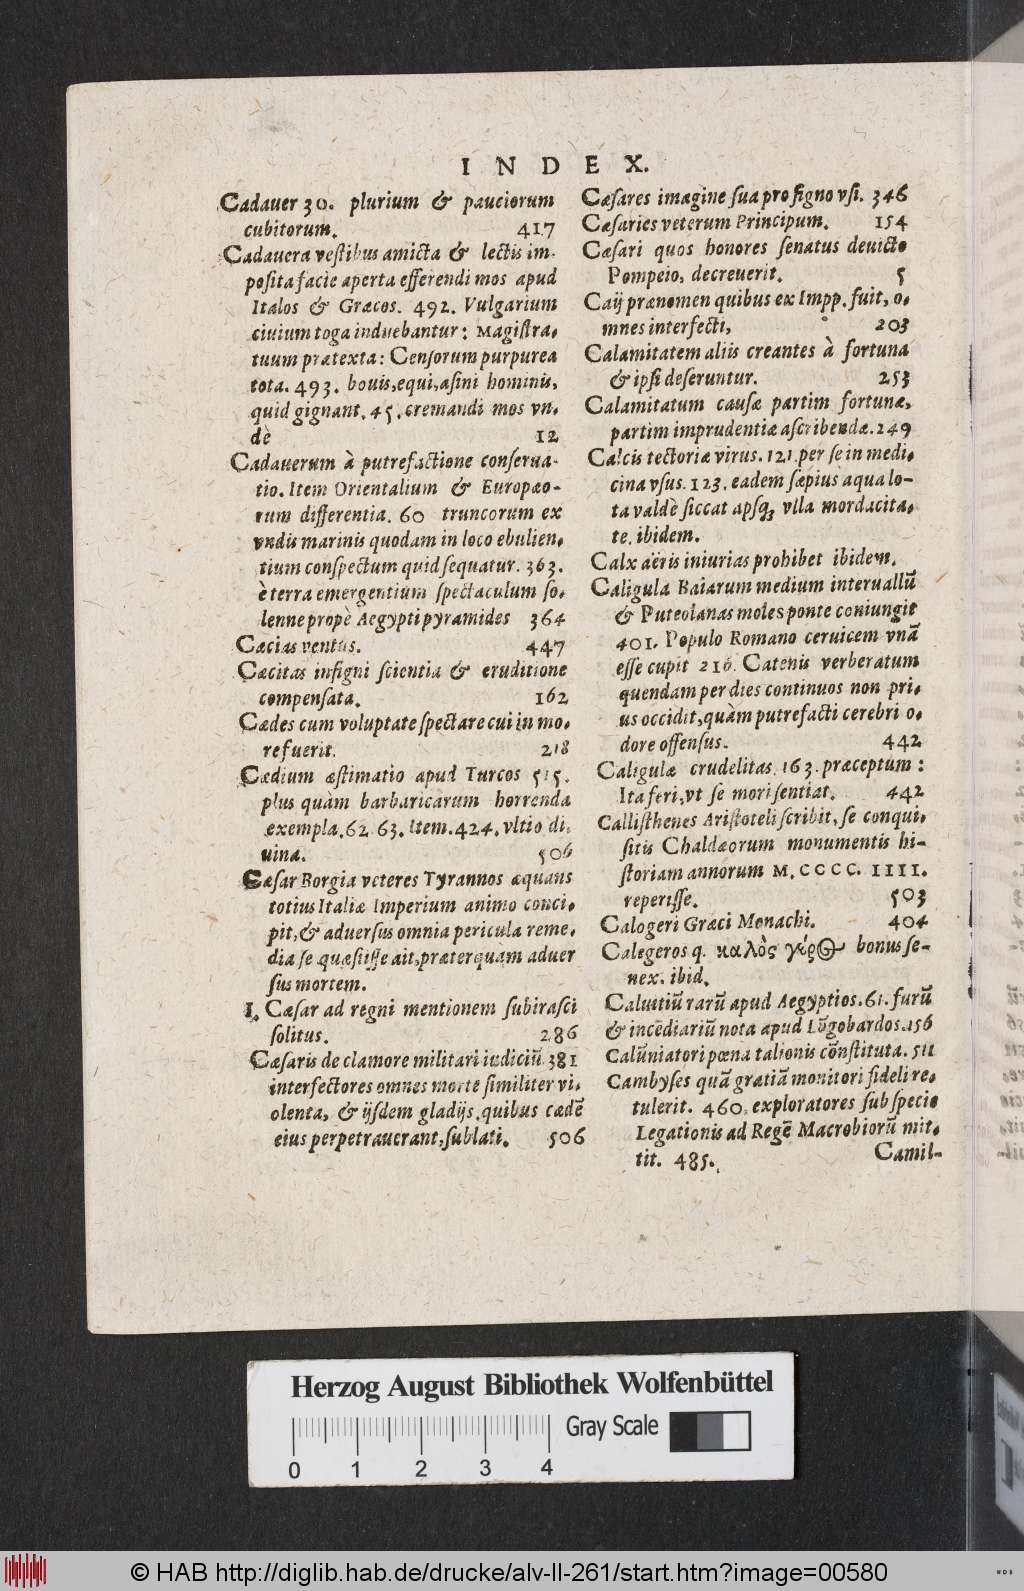 INDEX.
Cadauer 30. plurium & pauciorum
cubitorum. 417
Cadauera veſtibus amicta & lectis im-
poſita facie aperta efferendi mos apud
Italos & Græcos. 492. Vulgarium
ciuium toga induebantur: Magiſtra-
tuum prætexta: Cenſorum purpurea
tota. 493. bouis, equi, aſini hominis,
quid gignant. 45. cremandi mos vn-
dè 12
Cadauerum à putrefactione conſerua-
tio. Item Orientalium & Europæo-
rum differentia. 60 truncorum ex
vndis marinis quodam in loco ebulien-
tium conſpectum quid ſequatur. 363.
è terra emergentium ſpectaculum ſo-
lenne propè Aegypti pyramides 364
Cæcias ventus. 447
Cæcitas inſigni ſcientia & eruditione
compenſata. 162
Cædes cum voluptate ſpectare cui in mo-
re fuerit. 218
Cædium æſtimatio apud Turcos 515.
plus quàm barbaricarum horrenda
exempla. 62 63. Item. 424. vltio di-
uina. 506
Cæſar Borgia veteres Tyrannos æquans
totius Italiæ Imperium animo conci-
pit, & aduerſus omnia pericula reme-
dia ſe quæſiſſe ait, præterquàm aduer
ſus mortem.
I. Cæſar ad regni mentionem ſubiraſci
ſolitus. 286
Cæſaris de clamore militari iudiciū 381
interfectores omnes morte ſimiliter vi-
olenta, & ijſdem gladijs, quibus cædē
eius perpetrauerant, ſublati. 506
Cæſares imagine ſua pro ſigno vſi. 346
Cæſaries veterum Principum. 154
Cæſari quos honores ſenatus deuicto
Pompeio, decreuerit. 5
Caij prænomen quibus ex Impp. fuit, o-
mnes interfecti, 203
Calamitatem aliis creantes à fortuna
& ipſi deſeruntur. 253
Calamitatum cauſæ partim fortunæ,
partim imprudentiæ aſcribendæ. 249
Calcis tectoriæ virus. 121. per ſe in medi-
cina vſus. 123. eadem ſæpius aqua lo-
ta valdè ſiccat apſq; vlla mordacita-
te. ibidem.
Calx aëris iniurias prohibet ibidem.
Caligula Baiarum medium interuallū
& Puteolanas moles ponte coniungit
401. Populo Romano ceruicem vnā
eſſe cupit 216. Catenis verberatum
quendam per dies continuos non pri-
us occidit, quàm putrefacti cerebri o-
dore offenſus. 442
Caligulæ crudelitas. 163. præceptum:
Ita feri, vt ſe mori ſentiat. 442
Calliſthenes Ariſtoteli ſcribit, ſe conqui-
ſitis Chaldæorum monumentis hi-
ſtoriam annorum M. CCCC. IIII.
reperiſſe. 503
Calogeri Græci Monachi. 404
Calegeros q. καλὸς γέρ bonus ſe-
nex. ibid.
Caluitiū rarū apud Aegyptios. 61. furū
& incēdiariū nota apud Lōgobardos. 156
Calūniatori pœna talionis cōſtituta. 511
Cambyſes quā gratiā monitori fideli re-
tulerit. 460. exploratores ſub ſpecie
Legationis ad Regē Macrobiorū mit-
tit. 485.
Camil-
Herzog August Bibliothek Wolfenbüttel
Gray Scale
0 1 2 3 4
© HAB http://diglib.hab.de/drucke/alv-ll-261/start.htm?image=00580